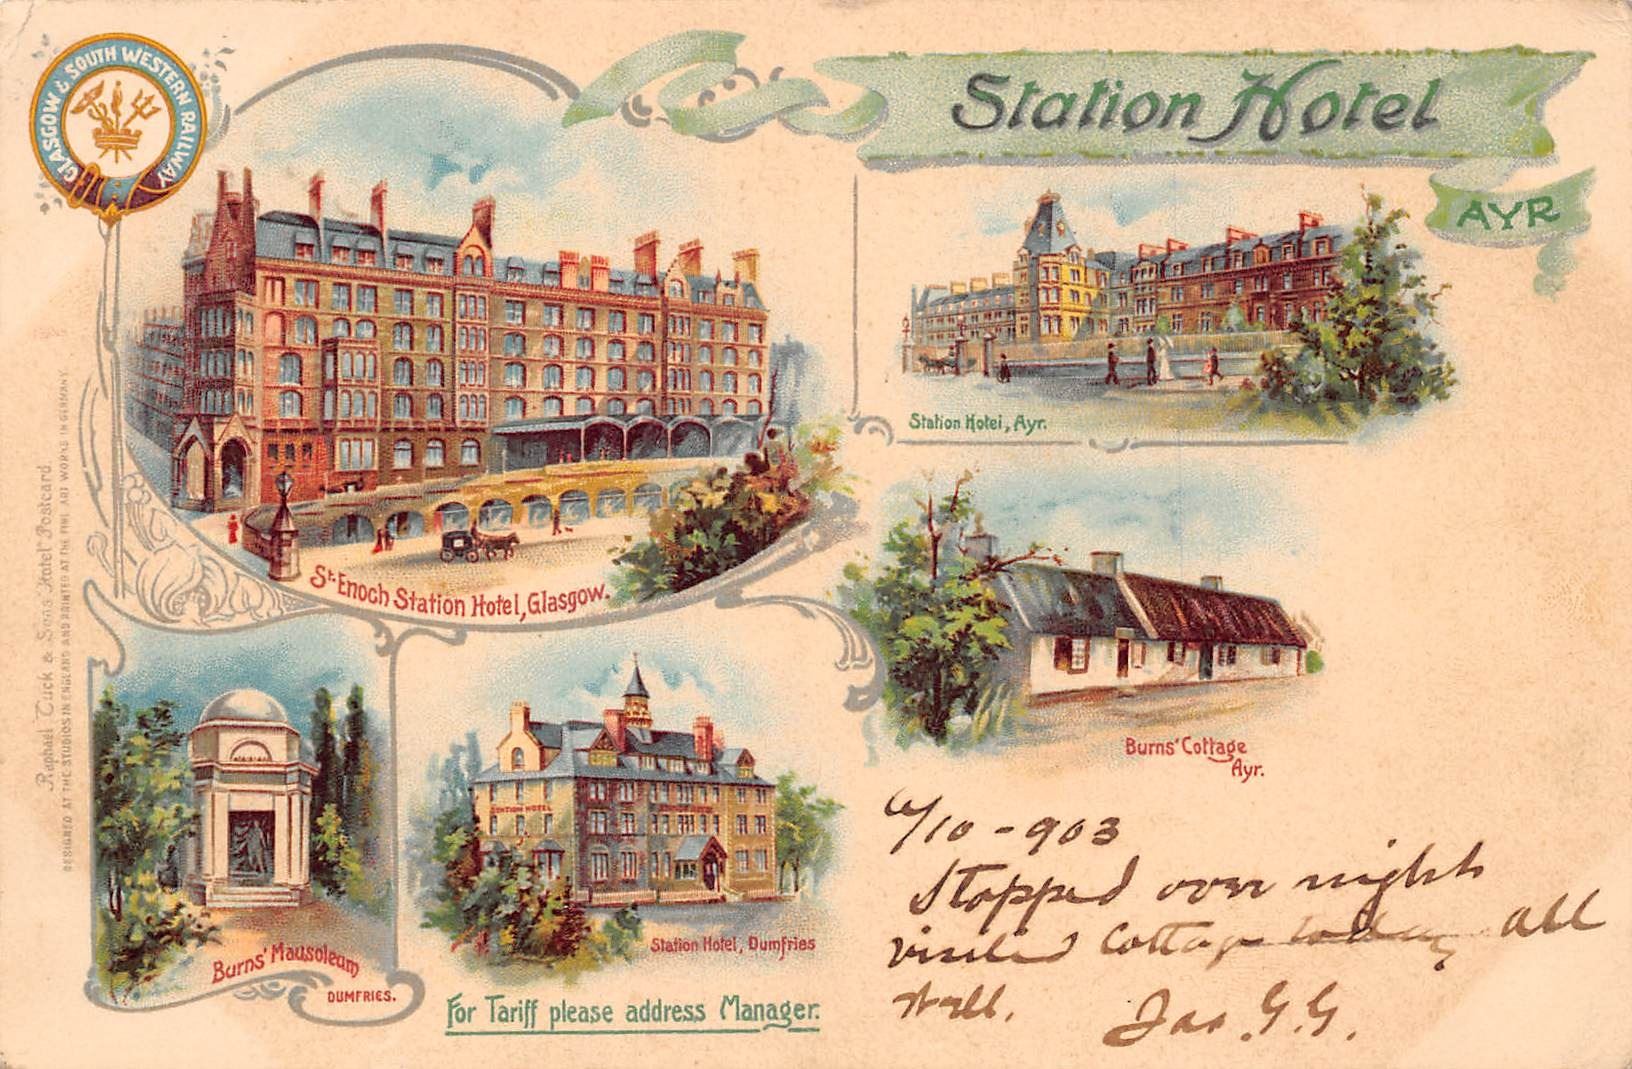 GLASGOW & SOUTH WESTERN RAILWAY
Station Hotel
AYR
St. Enoch Station Hotel, Glasgow.
Station Hotel, Ayr.
Burns' Cottage
Ayr.
Burns' Mausoleum
DUMFRIES.
STATION HOTEL
Station Hotel, Dumfries
For Tariff please address Manager.
Raphael Tuck & Sons' "Hotel" Postcard
DESIGNED AT THE STUDIOS IN ENGLAND AND PRINTED AT THE FINE ART WORKS IN GERMANY
/10 - 903
Stopped over night
visited Cottage today all
well.
Jas. G. G.